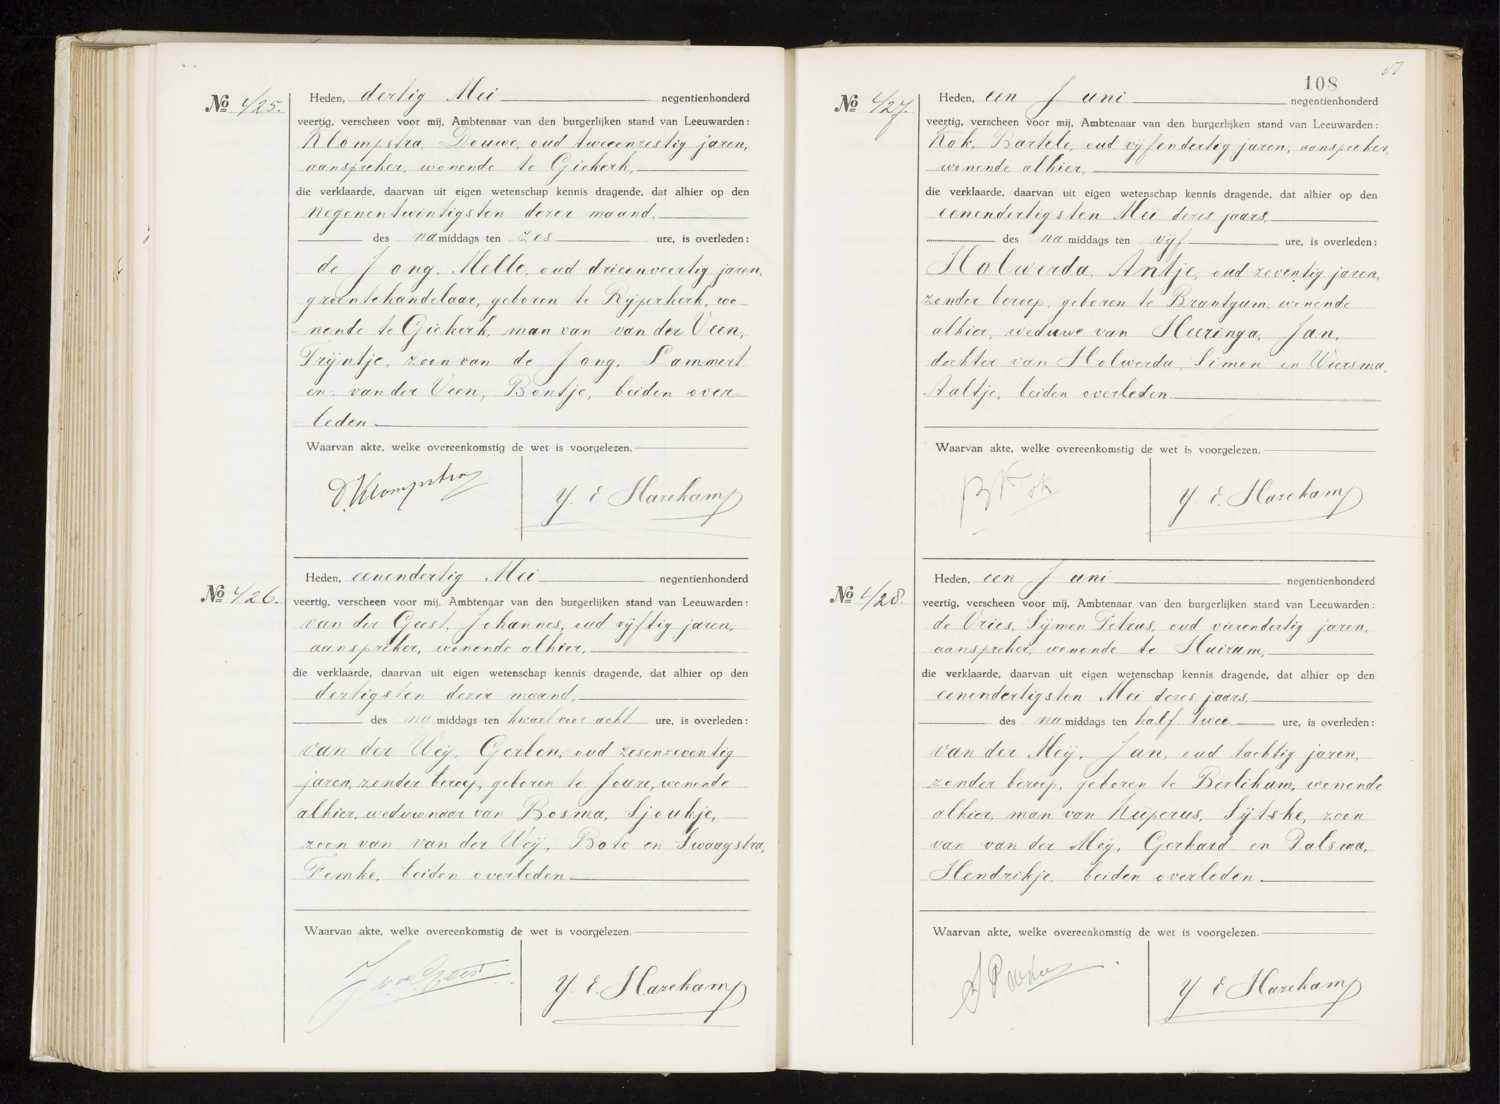 No 425.
Heden, dertig Mei negentienhonderd
veertig, verscheen voor mij, Ambtenaar van den burgerlijken stand van Leeuwarden:
Klompstra, Douwe, oud tweeenzestig jaren,
aanspreker, wonende te Giekerk,
die verklaarde, daarvan uit eigen wetenschap kennis dragende, dat alhier op den
negenentwintigsten dezer maand,
des namiddags ten zes ure, is overleden:
de Jong, Melle, oud drieenveertig jaren,
groentehandelaar, geboren te Rijperkerk, wo-
nende te Giekerk, man van van der Veen,
Trijntje, zoon van de Jong, Lammert
en van der Veen, Bontje, beiden over-
leden
Waarvan akte, welke overeenkomstig de wet is voorgelezen.
D. Klompstra Y. E. Harekamp
No 426.
Heden, eenendertig Mei negentienhonderd
veertig, verscheen voor mij, Ambtenaar van den burgerlijken stand van Leeuwarden:
van der Geest, Johannes, oud vijftig jaren,
aanspreker, wonende alhier,
die verklaarde, daarvan uit eigen wetenschap kennis dragende, dat alhier op den
dertigsten dezer maand,
des namiddags ten kwart voor acht ure, is overleden:
van der Weij, Gerben, oud zesenzeventig
jaren, zonder beroep, geboren te Joure, wonende
alhier, weduwnaar van Bosma, Sjoukje,
zoon van van der Weij, Bote en Swaagstra,
Femke, beiden overleden
Waarvan akte, welke overeenkomstig de wet is voorgelezen.
J. v. d. Geest Y. E. Harekamp
108
No 427.
Heden, een Juni negentienhonderd
veertig, verscheen voor mij, Ambtenaar van den burgerlijken stand van Leeuwarden:
Kok, Bartele, oud vijfendertig jaren, aanspreker,
wonende alhier,
die verklaarde, daarvan uit eigen wetenschap kennis dragende, dat alhier op den
eenendertigsten Mei dezes jaars,
des namiddags ten vijf ure, is overleden:
Holwerda, Antje, oud zeventig jaren,
zonder beroep, geboren te Brantgum, wonende
alhier, weduwe van Heeringa, Jan,
dochter van Holwerda, Simen en Wiersma,
Aaltje, beiden overleden
Waarvan akte, welke overeenkomstig de wet is voorgelezen.
B Kok Y. E. Harekamp
No 428.
Heden, een Juni negentienhonderd
veertig, verscheen voor mij, Ambtenaar van den burgerlijken stand van Leeuwarden:
de Vries, Sijmen Petrus, oud vierendertig jaren,
aanspreker, wonende te Huizum,
die verklaarde, daarvan uit eigen wetenschap kennis dragende, dat alhier op den
eenendertigsten Mei dezes jaars,
des namiddags ten half twee ure, is overleden:
van der Meij, Jan, oud tachtig jaren,
zonder beroep, geboren te Berlikum, wonende
alhier, man van Kuperus, Sijtske, zoon
van van der Meij, Gerhard en Palsma,
Hendrikje, beiden overleden.
Waarvan akte, welke overeenkomstig de wet is voorgelezen.
Y E Harekamp